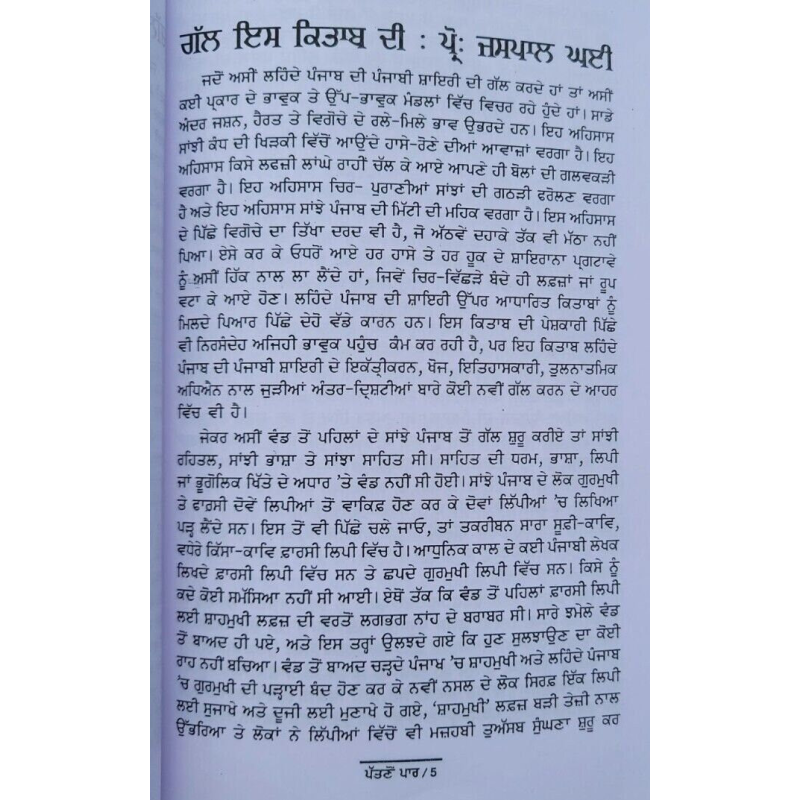 ਗੱਲ ਇਸ ਕਿਤਾਬ ਦੀ : ਪ੍ਰੋ: ਜਸਪਾਲ ਘਈ
ਜਦੋਂ ਅਸੀਂ ਲਹਿੰਦੇ ਪੰਜਾਬ ਦੀ ਪੰਜਾਬੀ ਸ਼ਾਇਰੀ ਦੀ ਗੱਲ ਕਰਦੇ ਹਾਂ ਤਾਂ ਅਸੀਂ
ਕਈ ਪ੍ਰਕਾਰ ਦੇ ਭਾਵੁਕ ਤੇ ਉੱਪ-ਭਾਵੁਕ ਮੰਡਲਾਂ ਵਿੱਚ ਵਿਚਰ ਰਹੇ ਹੁੰਦੇ ਹਾਂ। ਸਾਡੇ
ਅੰਦਰ ਜਸ਼ਨ, ਹੈਰਤ ਤੇ ਵਿਗੋਚੇ ਦੇ ਰਲੇ-ਮਿਲੇ ਭਾਵ ਉਭਰਦੇ ਹਨ। ਇਹ ਅਹਿਸਾਸ
ਸਾਂਝੀ ਕੰਧ ਦੀ ਖਿੜਕੀ ਵਿੱਚੋਂ ਆਉਂਦੇ ਹਾਸੇ-ਰੋਣੇ ਦੀਆਂ ਆਵਾਜ਼ਾਂ ਵਰਗਾ ਹੈ। ਇਹ
ਅਹਿਸਾਸ ਕਿਸੇ ਲਫਜ਼ੀ ਲਾਂਘੇ ਰਾਹੀਂ ਚੱਲ ਕੇ ਆਏ ਆਪਣੇ ਹੀ ਬੋਲਾਂ ਦੀ ਗਲਵਕੜੀ
ਵਰਗਾ ਹੈ। ਇਹ ਅਹਿਸਾਸ ਚਿਰ- ਪੁਰਾਣੀਆਂ ਸਾਂਝਾਂ ਦੀ ਗਠੜੀ ਫਰੋਲਣ ਵਰਗਾ
ਹੈ ਅਤੇ ਇਹ ਅਹਿਸਾਸ ਸਾਂਝੇ ਪੰਜਾਬ ਦੀ ਮਿੱਟੀ ਦੀ ਮਹਿਕ ਵਰਗਾ ਹੈ। ਇਸ ਅਹਿਸਾਸ
ਦੇ ਪਿੱਛੇ ਵਿਗੋਚੇ ਦਾ ਤਿੱਖਾ ਦਰਦ ਵੀ ਹੈ, ਜੋ ਅੱਠਵੇਂ ਦਹਾਕੇ ਤੱਕ ਵੀ ਮੱਠਾ ਨਹੀਂ
ਪਿਆ। ਏਸੇ ਕਰ ਕੇ ਓਧਰੋਂ ਆਏ ਹਰ ਹਾਸੇ ਤੇ ਹਰ ਹੂਕ ਦੇ ਸ਼ਾਇਰਾਨਾ ਪ੍ਰਗਟਾਵੇ
ਨੂੰ ਅਸੀਂ ਹਿੱਕ ਨਾਲ ਲਾ ਲੈਂਦੇ ਹਾਂ, ਜਿਵੇਂ ਚਿਰ-ਵਿੱਛੜੇ ਬੰਦੇ ਹੀ ਲਫ਼ਜ਼ਾਂ ਜਾਂ ਰੂਪ
ਵਟਾ ਕੇ ਆਏ ਹੋਣ। ਲਹਿੰਦੇ ਪੰਜਾਬ ਦੀ ਸ਼ਾਇਰੀ ਉੱਪਰ ਆਧਾਰਿਤ ਕਿਤਾਬਾਂ ਨੂੰ
ਮਿਲਦੇ ਪਿਆਰ ਪਿੱਛੇ ਦੇਹੋ ਵੱਡੇ ਕਾਰਨ ਹਨ। ਇਸ ਕਿਤਾਬ ਦੀ ਪੇਸ਼ਕਾਰੀ ਪਿੱਛੇ
ਵੀ ਨਿਰਸੰਦੇਹ ਅਜਿਹੀ ਭਾਵੁਕ ਪਹੁੰਚ ਕੰਮ ਕਰ ਰਹੀ ਹੈ, ਪਰ ਇਹ ਕਿਤਾਬ ਲਹਿੰਦੇ
ਪੰਜਾਬ ਦੀ ਪੰਜਾਬੀ ਸ਼ਾਇਰੀ ਦੇ ਇਕੱਤ੍ਰੀਕਰਨ, ਖੋਜ, ਇਤਿਹਾਸਕਾਰੀ, ਤੁਲਨਾਤਮਿਕ
ਅਧਿਐਨ ਨਾਲ ਜੁੜੀਆਂ ਅੰਤਰ-ਦ੍ਰਿਸ਼ਟੀਆਂ ਬਾਰੇ ਕੋਈ ਨਵੀਂ ਗੱਲ ਕਰਨ ਦੇ ਆਹਰ
ਵਿੱਚ ਵੀ ਹੈ।
ਜੇਕਰ ਅਸੀਂ ਵੰਡ ਤੋਂ ਪਹਿਲਾਂ ਦੇ ਸਾਂਝੇ ਪੰਜਾਬ ਤੋਂ ਗੱਲ ਸ਼ੁਰੂ ਕਰੀਏ ਤਾਂ ਸਾਂਝੀ
ਰਹਿਤਲ, ਸਾਂਝੀ ਭਾਸ਼ਾ ਤੇ ਸਾਂਝਾ ਸਾਹਿਤ ਸੀ। ਸਾਹਿਤ ਦੀ ਧਰਮ, ਭਾਸ਼ਾ, ਲਿਪੀ
ਜਾਂ ਭੂਗੋਲਿਕ ਖਿੱਤੇ ਦੇ ਅਧਾਰ 'ਤੇ ਵੰਡ ਨਹੀਂ ਸੀ ਹੋਈ। ਸਾਂਝੇ ਪੰਜਾਬ ਦੇ ਲੋਕ ਗੁਰਮੁਖੀ
ਤੇ ਫਾਰਸੀ ਦੋਵੇਂ ਲਿਪੀਆਂ ਤੋਂ ਵਾਕਿਫ਼ ਹੋਣ ਕਰ ਕੇ ਦੋਵਾਂ ਲਿੱਪੀਆਂ 'ਚ ਲਿਖਿਆ
ਪੜ੍ਹ ਲੈਂਦੇ ਸਨ। ਇਸ ਤੋਂ ਵੀ ਪਿੱਛੇ ਚਲੇ ਜਾਓ, ਤਾਂ ਤਕਰੀਬਨ ਸਾਰਾ ਸੂਫ਼ੀ-ਕਾਵਿ,
ਵਧੇਰੇ ਕਿੱਸਾ-ਕਾਵਿ ਫ਼ਾਰਸੀ ਲਿਪੀ ਵਿੱਚ ਹੈ। ਆਧੁਨਿਕ ਕਾਲ ਦੇ ਕਈ ਪੰਜਾਬੀ ਲੇਖਕ
ਲਿਖਦੇ ਫ਼ਾਰਸੀ ਲਿਪੀ ਵਿੱਚ ਸਨ ਤੇ ਛਪਦੇ ਗੁਰਮੁਖੀ ਲਿਪੀ ਵਿੱਚ ਸਨ। ਕਿਸੇ ਨੂੰ
ਕਦੇ ਕੋਈ ਸਮੱਸਿਆ ਨਹੀਂ ਸੀ ਆਈ। ਏਥੋਂ ਤੱਕ ਕਿ ਵੰਡ ਤੋਂ ਪਹਿਲਾਂ ਫ਼ਾਰਸੀ ਲਿਪੀ
ਲਈ ਸ਼ਾਹਮੁਖੀ ਲਫਜ਼ ਦੀ ਵਰਤੋਂ ਲਗਭਗ ਨਾਂਹ ਦੇ ਬਰਾਬਰ ਸੀ। ਸਾਰੇ ਝਮੇਲੇ ਵੰਡ
ਤੋਂ ਬਾਅਦ ਹੀ ਪਏ, ਅਤੇ ਇਸ ਤਰ੍ਹਾਂ ਉਲਝਦੇ ਗਏ ਕਿ ਹੁਣ ਸੁਲਝਾਉਣ ਦਾ ਕੋਈ
ਰਾਹ ਨਹੀਂ ਬਚਿਆ। ਵੰਡ ਤੋਂ ਬਾਅਦ ਚੜ੍ਹਦੇ ਪੰਜਾਖ 'ਚ ਸ਼ਾਹਮੁਖੀ ਅਤੇ ਲਹਿੰਦੇ ਪੰਜਾਬ
'ਚ ਗੁਰਮੁਖੀ ਦੀ ਪੜ੍ਹਾਈ ਬੰਦ ਹੋਣ ਕਰ ਕੇ ਨਵੀਂ ਨਸਲ ਦੇ ਲੋਕ ਸਿਰਫ਼ ਇੱਕ ਲਿਪੀ
ਲਈ ਸੁਜਾਖੇ ਅਤੇ ਦੂਜੀ ਲਈ ਮੁਣਾਖੇ ਹੋ ਗਏ, 'ਸ਼ਾਹਮੁਖੀ' ਲਫ਼ਜ਼ ਬੜੀ ਤੇਜ਼ੀ ਨਾਲ
ਉੱਭਰਿਆ ਤੇ ਲੋਕਾਂ ਨੇ ਲਿੱਪੀਆਂ ਵਿੱਚੋਂ ਵੀ ਮਜ਼ਹਬੀ ਤੁਅੱਸਬ ਸੁੰਘਣਾ ਸ਼ੁਰੂ ਕਰ
ਪੱਤਣੋਂ ਪਾਰ/5